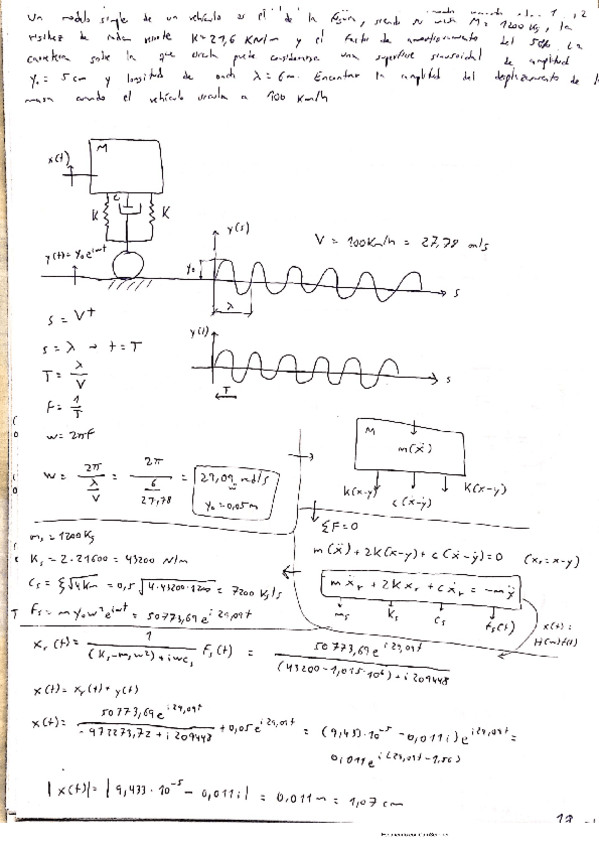 Un modelo simple de un vehículo es el de la figura, siendo su masa M = 1200 Kg, la
rigidez de cada resorte K=21,6 KN/m y el factor de amortiguamiento del 50%. La
carretera sobre la que circula puede considerarse una superficie sinusoidal de amplitud
Y₀ = 5 cm y longitud de onda λ = 6m. Encontrar la amplitud del desplazamiento de la
masa cuando el vehículo circula a 100 Km/h
M
x(t)
c
K K
y(t)=y₀e^iwt
y(s)
V = 100Km/h = 27,78 m/s
y₀
λ
s
s = Vt
s = λ → t = T
y(t)
T
s
T = λ/V
f = 1/T
w = 2πf
w = 2π/(λ/V) = 2π/(6/27,78) = 29,09 rad/s
y₀ = 0,05m
M
m(ẍ)
K(x-y) c(ẋ-ẏ) K(x-y)
ΣF=0
m(ẍ) + 2K(x-y) + c(ẋ-ẏ) = 0 (xᵣ = x-y)
mẍᵣ + 2Kxᵣ + cẋᵣ = -mÿ
mₛ Kₛ Cₛ fₛ(t)
mₛ = 1200Kg
Kₛ = 2·21600 = 43200 N/m
Cₛ = ξ√4Km = 0,5√4·43200·1200 = 7200 Kg/s
Fₛ = m y₀w²e^iwt = 50773,69e^i29,09t
x(t) =
H(w)f(t)
xᵣ(t) = 1/((Kₛ-mₛw²)+iwcₛ) Fₛ(t) = 50773,69e^i29,09t/((43200-1,015·10⁶)+i209448)
x(t) = xᵣ(t) + y(t)
x(t) = 50773,69e^i29,09t/(-972273,72+i209448) + 0,05e^i29,09t = (9,433·10⁻⁵ - 0,011i)e^i29,09t =
0,011e^i(29,09t-1,56)
|x(t)| = |9,433·10⁻⁵ - 0,011i| = 0,011m = 1,07 cm